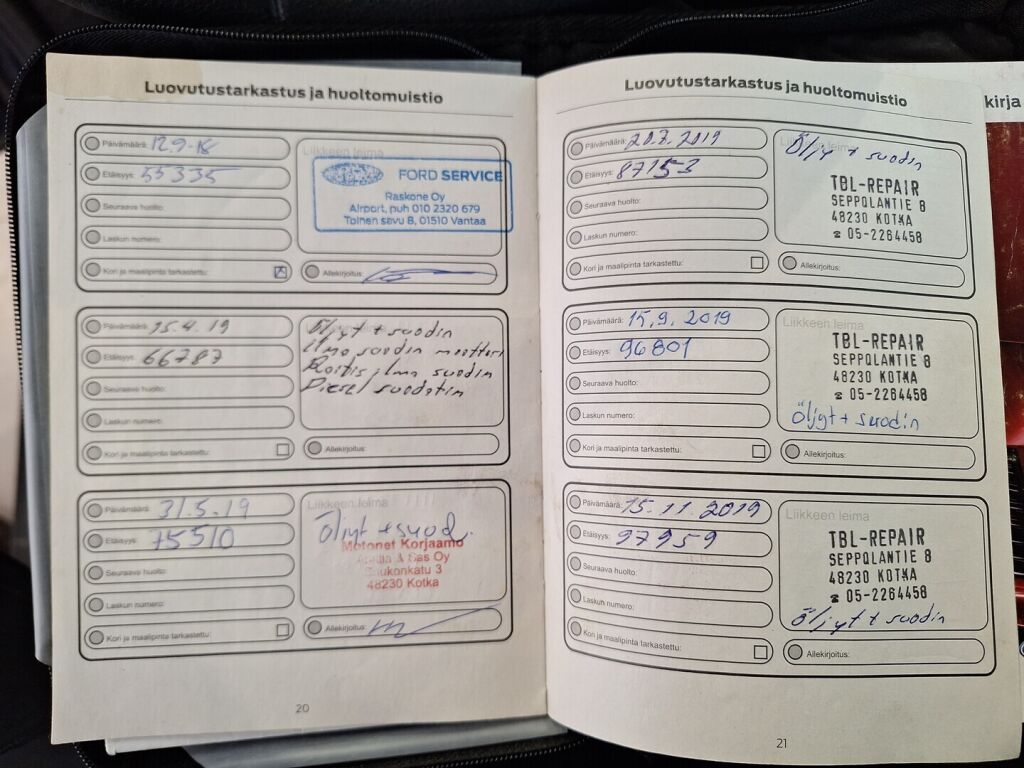 Luovutustarkastus ja huoltomuistio
Päivämäärä: 12.9-18
Etäisyys: 55335
Seuraava huolto:
Laskun numero:
Kori ja maalipinta tarkastettu:
Liikkeen leima
FORD SERVICE
Raskone Oy
Airport, puh 010 2320 679
Toinen savu 8, 01510 Vantaa
Allekirjoitus:
Päivämäärä: 15.4.19
Etäisyys: 66787
Seuraava huolto:
Laskun numero:
Kori ja maalipinta tarkastettu:
Öljyt + suodin
Ilma suodin moottori
Raitis ilma suodin
Diesel suodatin
Allekirjoitus:
Päivämäärä: 31.5.19
Etäisyys: 75510
Seuraava huolto:
Laskun numero:
Kori ja maalipinta tarkastettu:
Liikkeen leima
Öljyt + suod.
Motonet Korjaamo
Oy
48230 Kotka
Allekirjoitus:
20
Luovutustarkastus ja huoltomuistio
Päivämäärä: 20.7.2019
Etäisyys: 87153
Seuraava huolto:
Laskun numero:
Kori ja maalipinta tarkastettu:
Öljy + suodin
TBL-REPAIR
SEPPOLANTIE 8
48230 KOTKA
☎ 05-2264458
Allekirjoitus:
Päivämäärä: 15.9.2019
Etäisyys: 96801
Seuraava huolto:
Laskun numero:
Kori ja maalipinta tarkastettu:
Liikkeen leima
TBL-REPAIR
SEPPOLANTIE 8
48230 KOTKA
☎ 05-2264458
öljyt + suodin
Allekirjoitus:
Päivämäärä: 15.11.2019
Etäisyys: 97959
Seuraava huolto:
Laskun numero:
Kori ja maalipinta tarkastettu:
Liikkeen leima
TBL-REPAIR
SEPPOLANTIE 8
48230 KOTKA
☎ 05-2264458
Öljyt + suodin
Allekirjoitus:
21
kirja